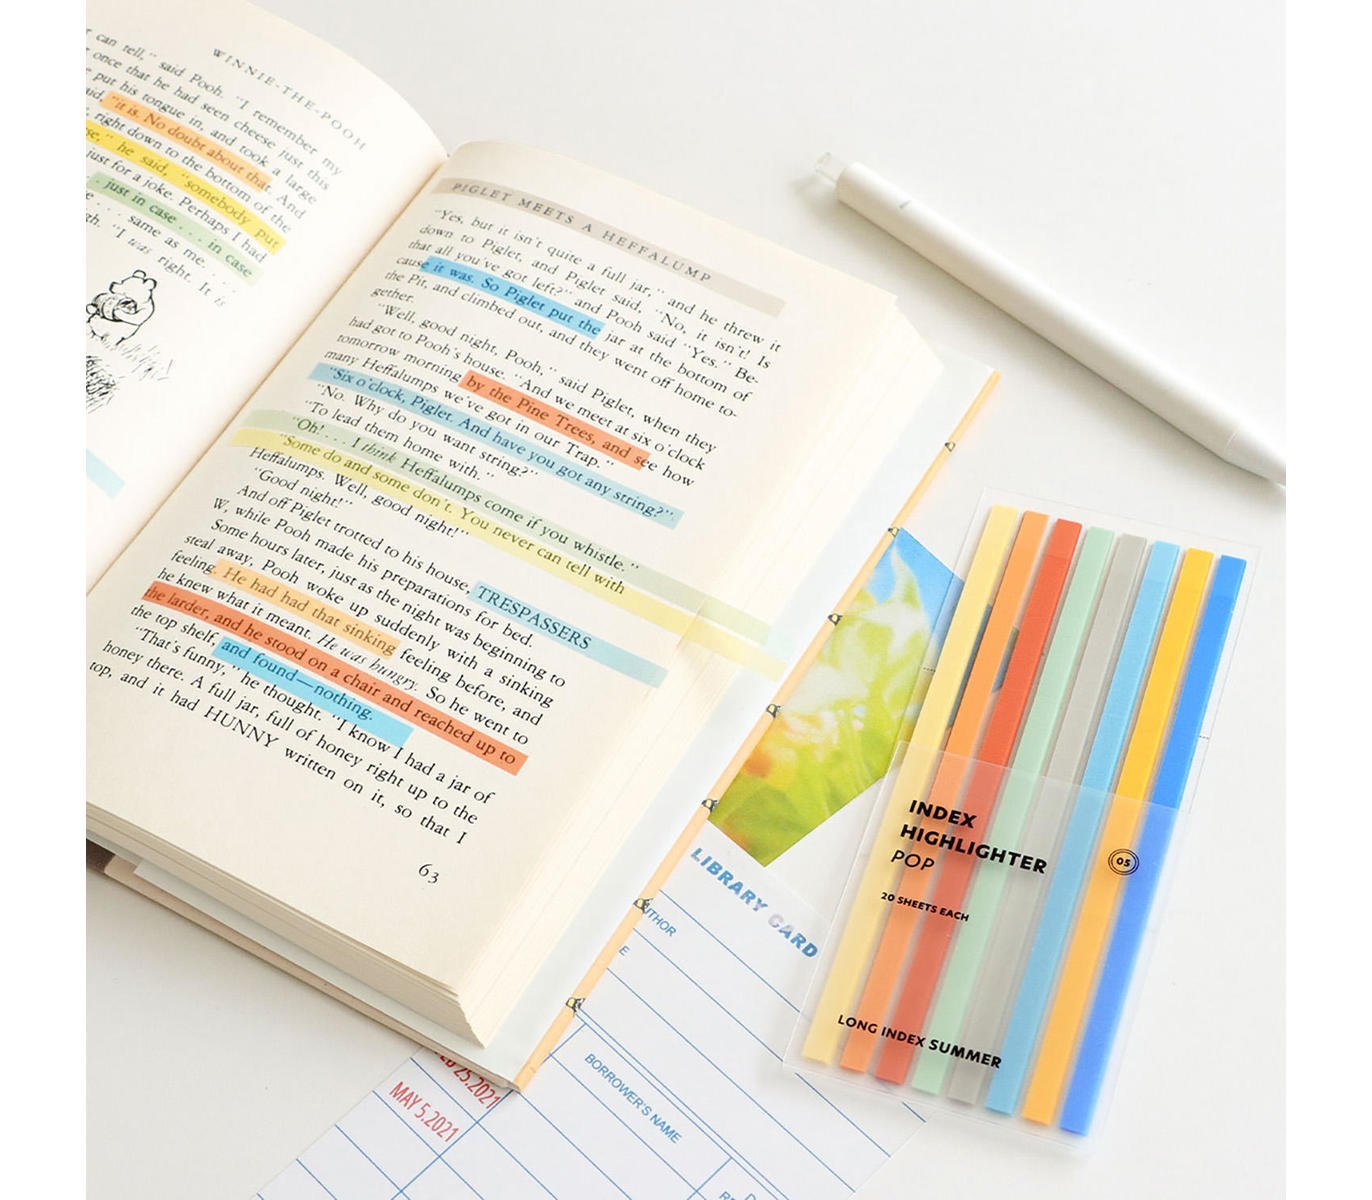 WINNIE-THE-POOH
can tell," said Pooh. "I remember my
once that he had seen cheese just this
put his tongue in, and took a large
"it is. No doubt about that. And
right down to the bottom of the
he said, "somebody put
just for a joke. Perhaps I had
. . just in case . . . in case
. . . same as me. . . .
"I was right. It is
PIGLET MEETS A HEFFALUMP
"Yes, but it isn't quite a full jar," and he threw it
down to Piglet, and Piglet said, "No, it isn't! Is
that all you've got left?" and Pooh said "Yes." Be-
cause it was. So Piglet put the jar at the bottom of
the Pit, and climbed out, and they went off home to-
gether.
"Well, good night, Pooh," said Piglet, when they
had got to Pooh's house. "And we meet at six o'clock
tomorrow morning by the Pine Trees, and see how
many Heffalumps we've got in our Trap."
"Six o'clock, Piglet. And have you got any string?"
"No. Why do you want string?"
"To lead them home with."
"Oh! . . . I think Heffalumps come if you whistle."
"Some do and some don't. You never can tell with
Heffalumps. Well, good night!"
"Good night!"
And off Piglet trotted to his house, TRESPASSERS
W, while Pooh made his preparations for bed.
Some hours later, just as the night was beginning to
steal away, Pooh woke up suddenly with a sinking
feeling. He had had that sinking feeling before, and
he knew what it meant. He was hungry. So he went to
the larder, and he stood on a chair and reached up to
the top shelf, and found—nothing.
"That's funny," he thought. "I know I had a jar of
honey there. A full jar, full of honey right up to the
top, and it had HUNNY written on it, so that I
63
INDEX
HIGHLIGHTER
POP
05
20 SHEETS EACH
LONG INDEX SUMMER
LIBRARY CARD
BORROWER'S NAME
25.2021
MAY 5.2021